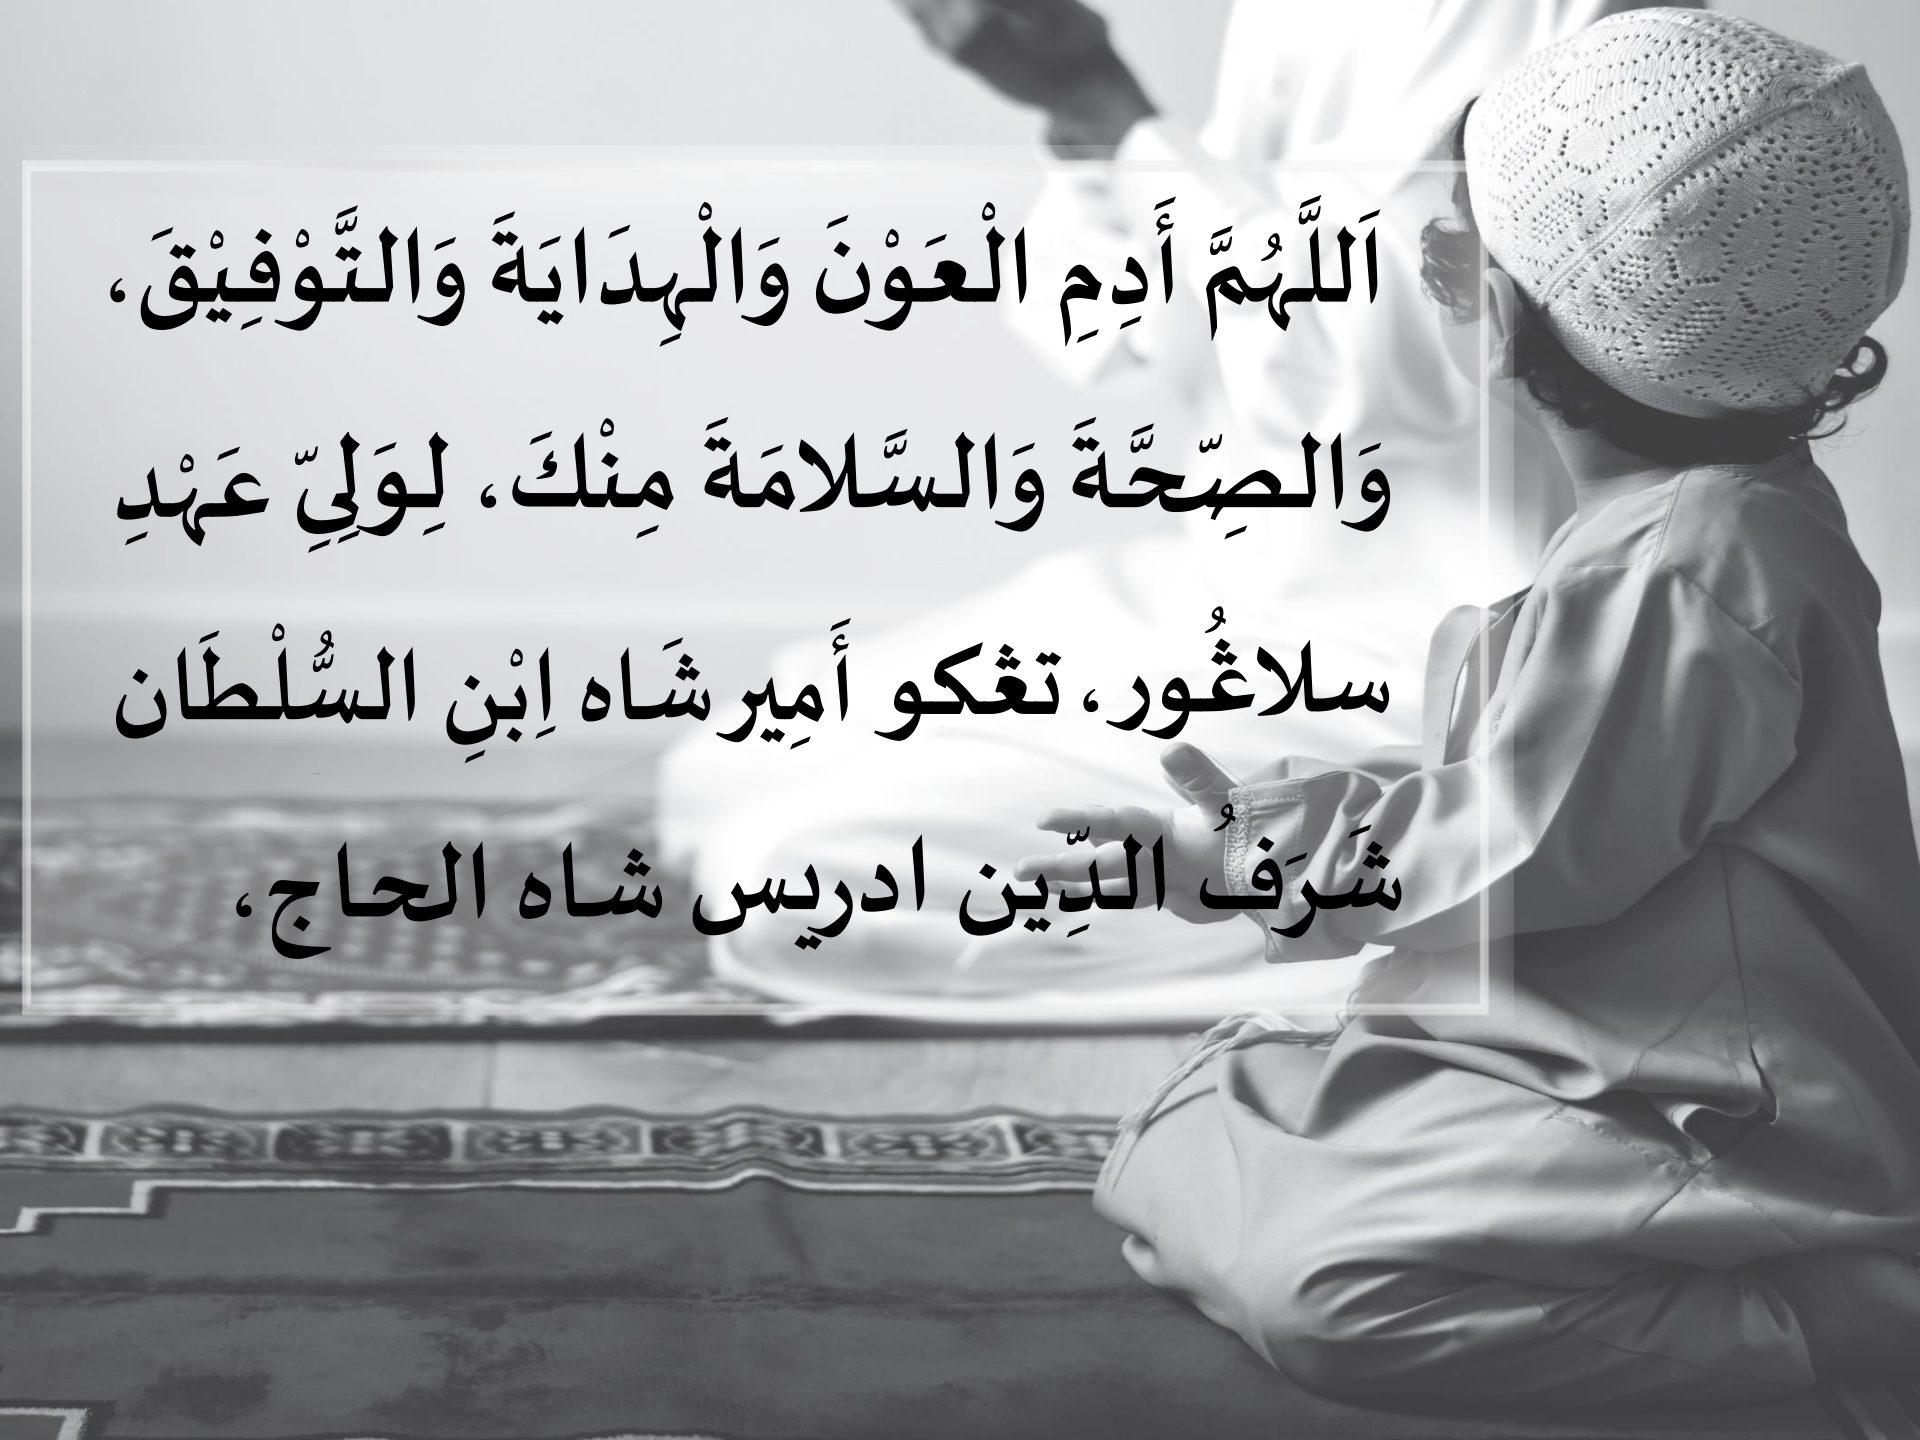 اَللَّهُمَّ أَدِمِ الْعَوْنَ وَالْهِدَايَةَ وَالتَّوْفِيْقَ،
وَالصِّحَّةَ وَالسَّلامَةَ مِنْكَ، لِوَلِيِّ عَهْدِ
سلاڠُور، تڠكو أَمِير شَاه اِبْنِ السُّلْطَان
شَرَفُ الدِّين ادريس شاه الحاج،